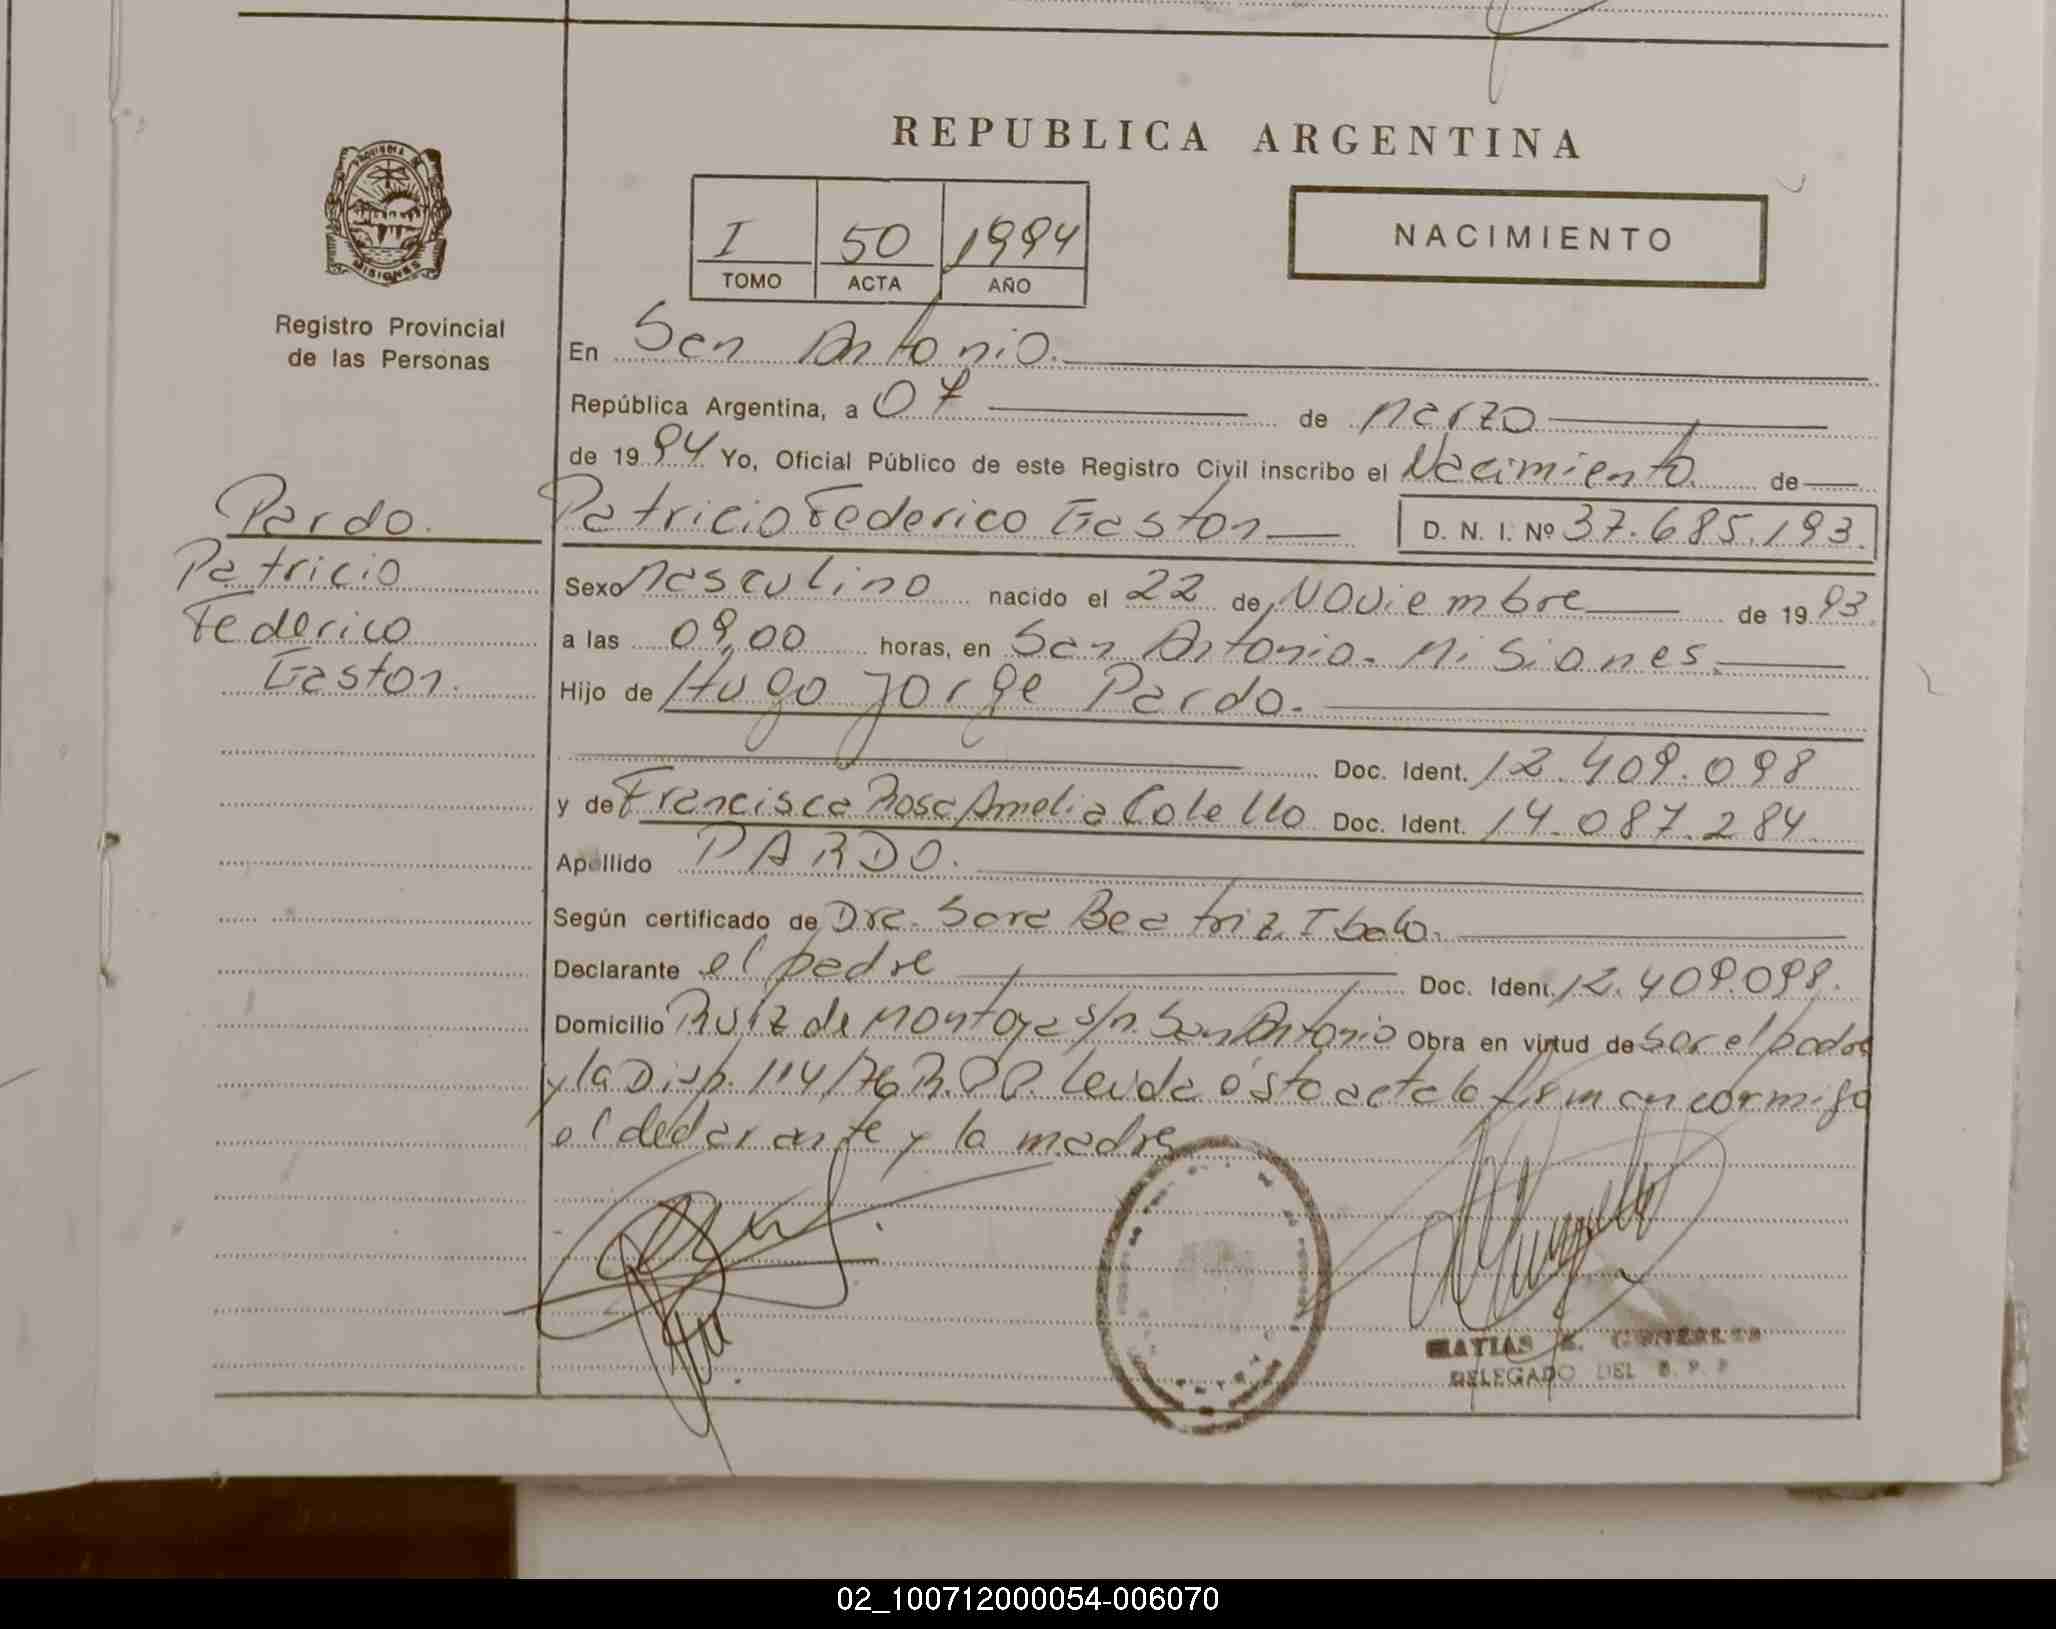 REPUBLICA ARGENTINA
PROVINCIA DE
MISIONES
Registro Provincial
de las Personas
I 50 1994
TOMO ACTA AÑO
NACIMIENTO
En San Antonio.
República Argentina, a 07 de Marzo
de 1994 Yo, Oficial Público de este Registro Civil inscribo el Nacimiento de
Patricio Federico Gaston D. N. I. Nº 37.685.193.
Pardo.
Patricio
Federico
Gaston.
Sexo Masculino nacido el 22 de Noviembre de 1993.
a las 09,00 horas, en San Antonio. Misiones.
Hijo de Hugo Jorge Pardo.
Doc. Ident. 12.409.098
y de Francisca Rosa Amelia Colello Doc. Ident. 14.087.284
Apellido PARDO.
Según certificado de Dra. Sara Beatriz
Declarante el padre Doc. Ident. 12.409.098.
Domicilio Ruiz de Montoya s/n. San Antonio Obra en virtud de ser el padre
y la Disp. 114/76 R.P.P. Leida ésta acta la firman conmigo
el declarante y la madre
MATIAS
DELEGADO DEL R. P. P
02_100712000054-006070